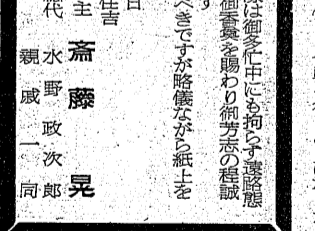 は御多忙中にも拘らず遠路態
御香奠を賜わり御芳志の程誠
す
べきですが略儀ながら紙上を
日
住吉
主 斎藤 晃
代 水野政次郎
親戚一同